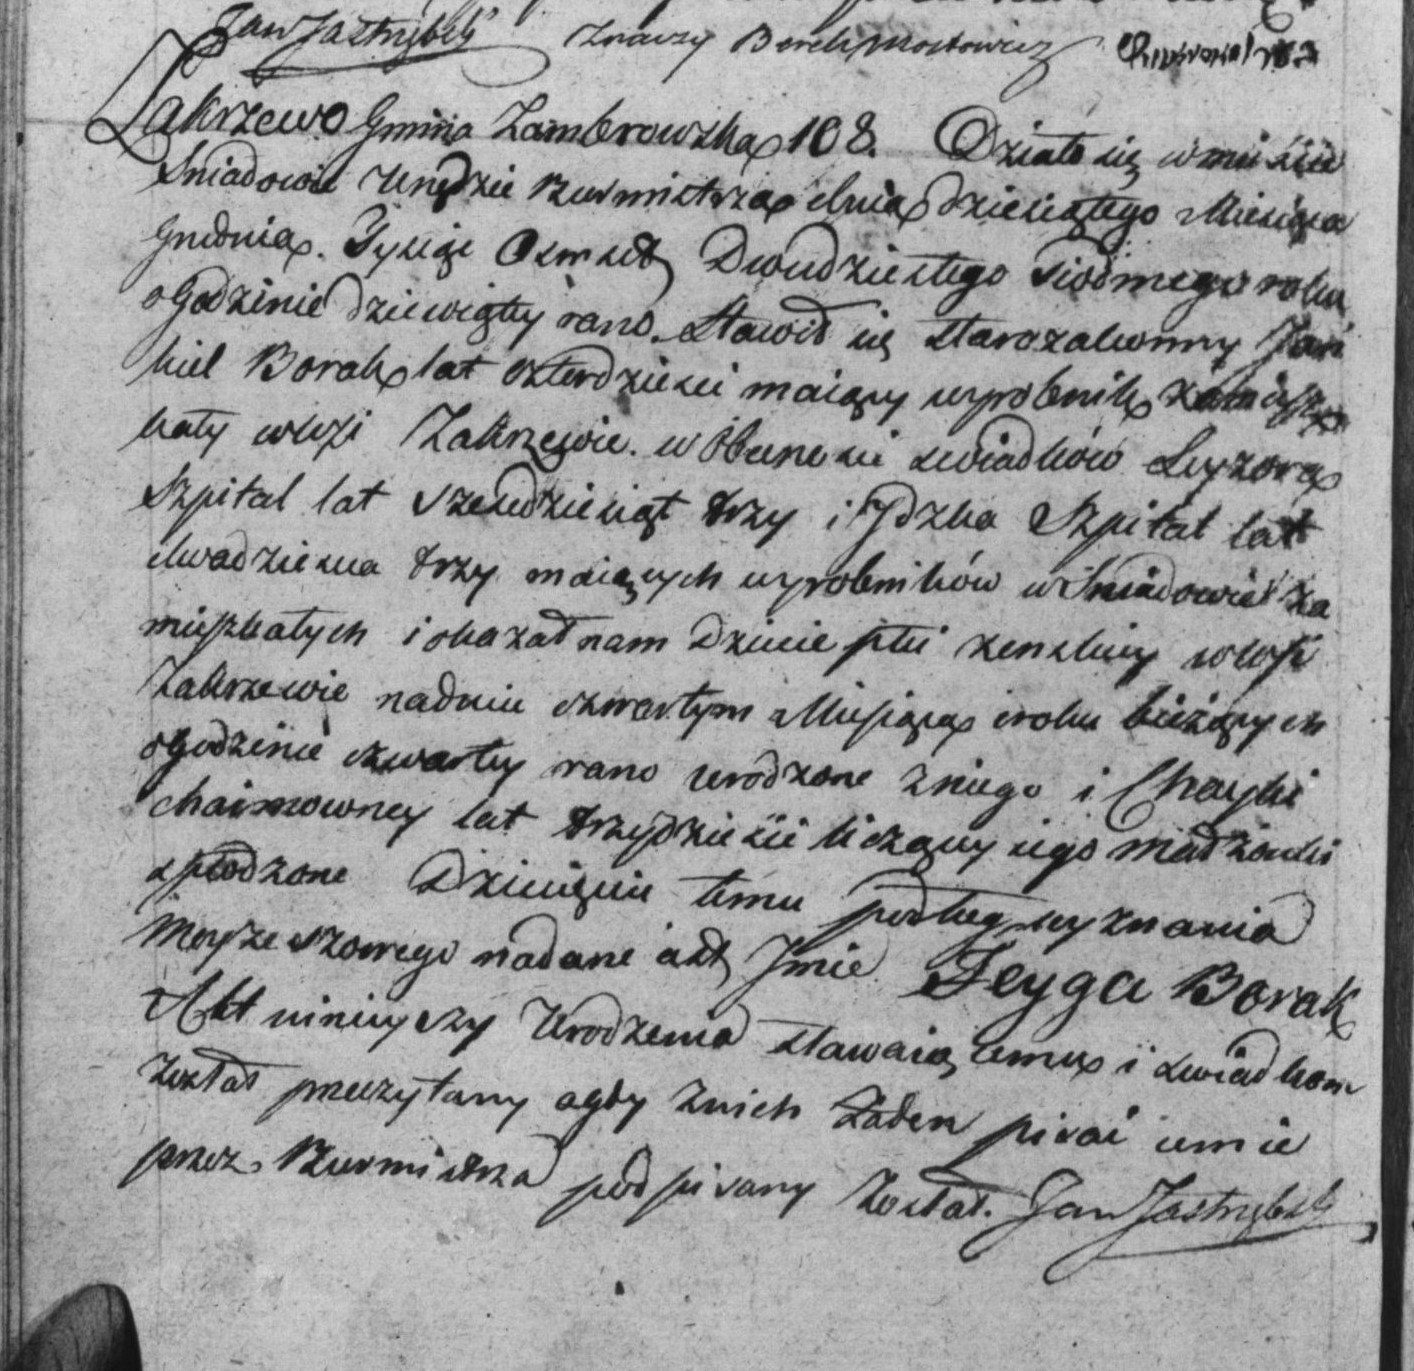 Jan Jastrzębski Znaczy Berek Moskowicz
Zakrzewo Gmina Zambrowska 108. Działo się w mieście
Sniadowie Urzędzie Burmistrza dnia dziesiątego Miesiąca
Grudnia. Tysiąc Osmset Dwudziestego siodmego roku
o Godzinie dziewiąty rano. Stawił się starozakonny Jan
kiel Borak lat czterdziesci maiący wyrobnik zamiesz
kały w wsi Zakrzewie. w Obecnosci swiadków Leyzora
Szpital lat szescdziesiąt trzy i Jdzka Szpital lat
dwadziescia trzy maiących wyrobników w Sniadowie za
mieszkałych i okazał nam Dziecie płci zenskiey w wsi
Zakrzewie na dniu czwartym Miesiąca i roku bieżących
o Godzinie czwarty rano urodzone z niego i Chayki
Chaimowney lat trzydziescie liczącey iego małżonki
spłodzone Dziecięciu temu podług wyznania
Moyżeszowego nadane iest Jmie Feyga Borak
Akt ninieyszy Urodzenia stawaiącemu i swiadkom
został przeczytany a gdy z nich żaden pisać umie
przez Burmistrza podpisany został. Jan Jastrzębski